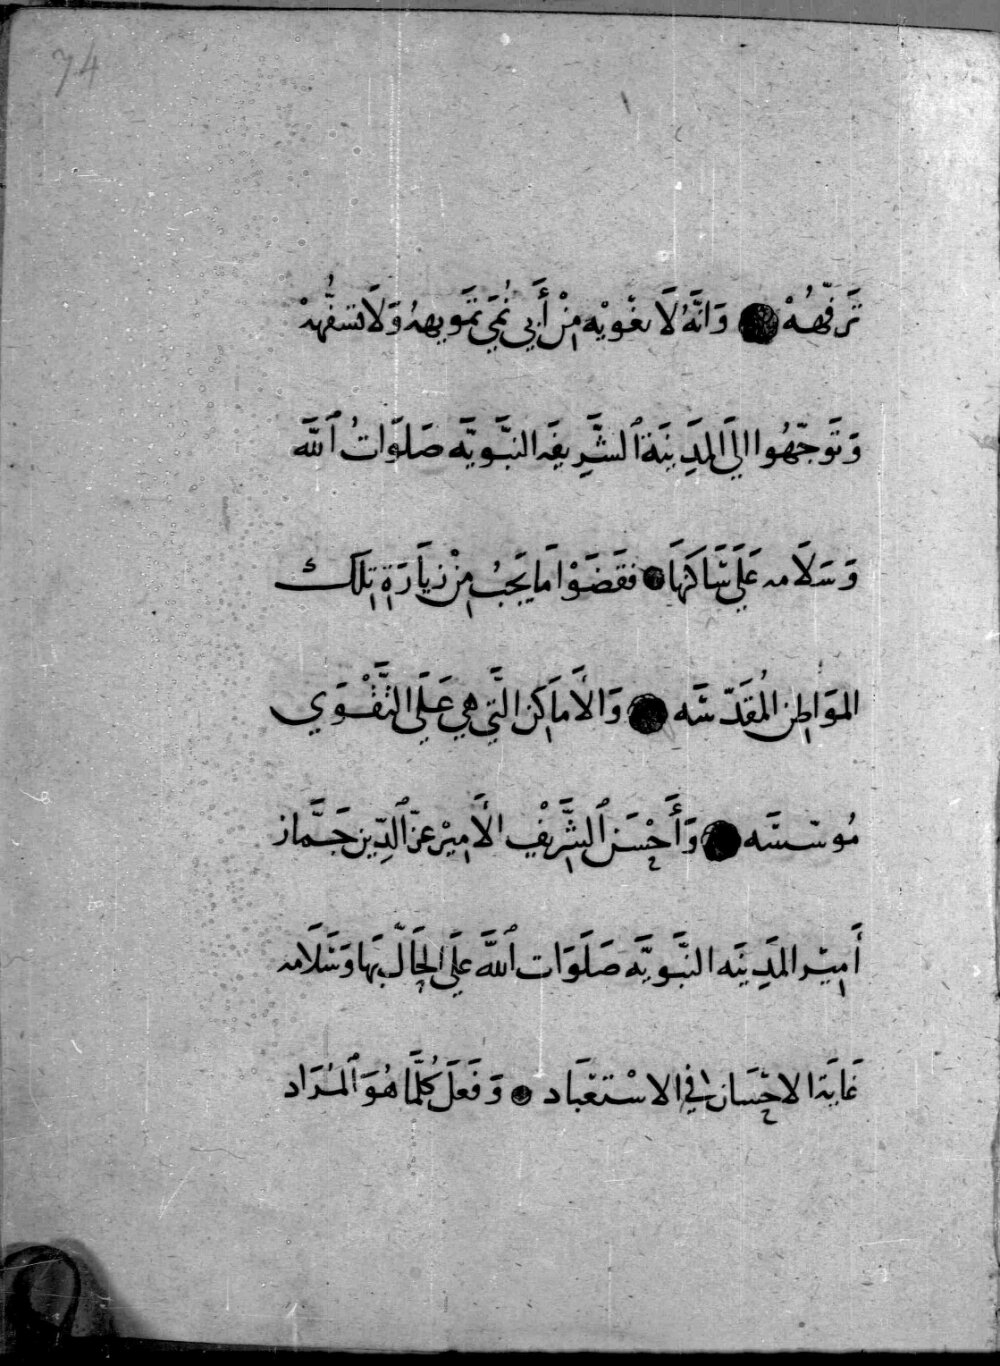 74
تَرَفُّهُهْ ۝ وَانَّهُ لَا يغْويْه مِنْ أَبي نُمَي تَمَويههُ وَلَا تسفُّههْ
وَتَوَجّهُوا الَى المدَينَة ٱلشَّرِيفه النبَّويَّه صَلَوَاتُ ٱللَّه
وَسَلَامه عَلَى سَّاكنهَا ۝ فقَضَوْا مَا يَجبُ مِنْ زيَارَة تِلكَ
الموَاطِن المُقَدّسَّه ۝ وَالأَمَاكن الَّتي هي عَلَى التَّقْوَي
مُوسّسَّه ۝ وَأَحْسَن ٱلشَّرِيْف الأَمِيْر عزّ ٱلدِّين جَمَّاز
أَمِيْر المدَينَه النبَّويَّه صَلَوَات ٱللَّه عَلَى الحَالّ بهَا وَسَّلَامه
غَايَة الاحْسَان في الاسْتعْبَاد ۝ وَفَعَلَ كُلَّمَا هُوَ ٱلمُرَاد